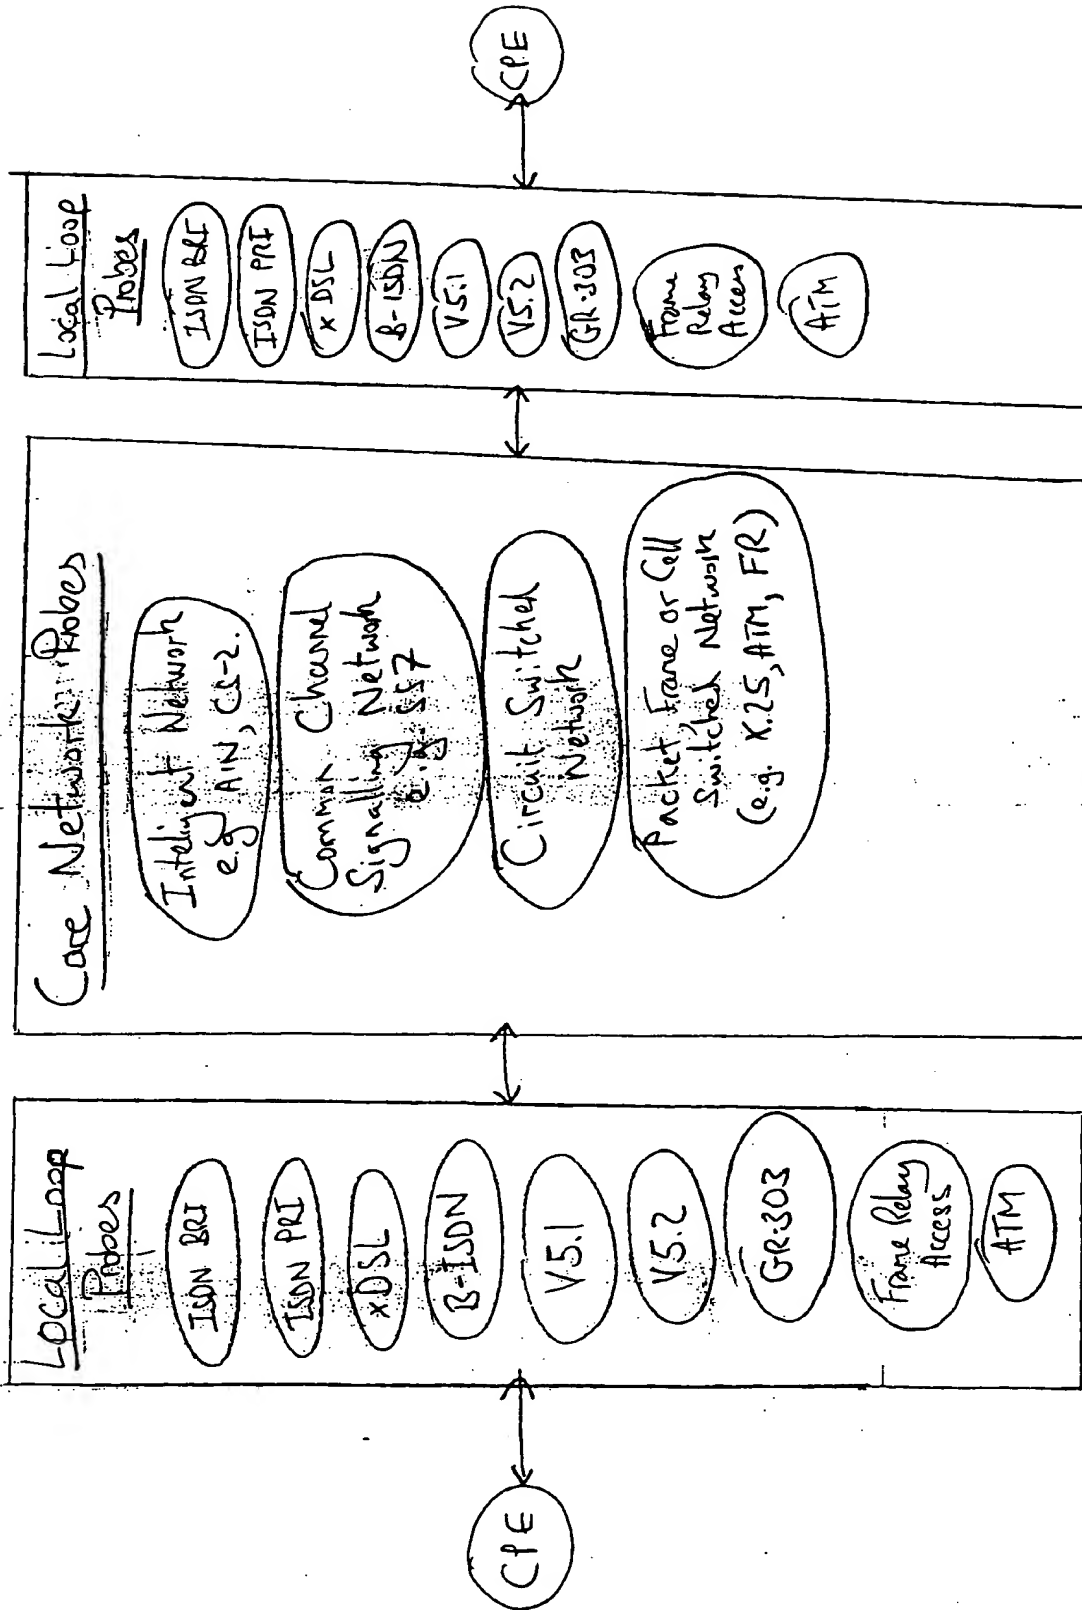 CPE
Local Loop
Probes
ISDN BRI
ISDN PRI
xDSL
B-ISDN
V5.1
V5.2
GR.303
Frame Relay
Access
ATM
Core Network Probes
Inteligent Network
e.g AIN, CS-2.
Common Channel
Signalling Network
e.g. SS7
Circuit Switched
Network
Packet, Frame or Cell
Switched Network
(e.g. X.25, ATM, FR)
Local Loop
Probes
ISDN BRI
ISDN PRI
xDSL
B-ISDN
V5.1
V5.2
GR.303
Frame
Relay
Access
ATM
CPE